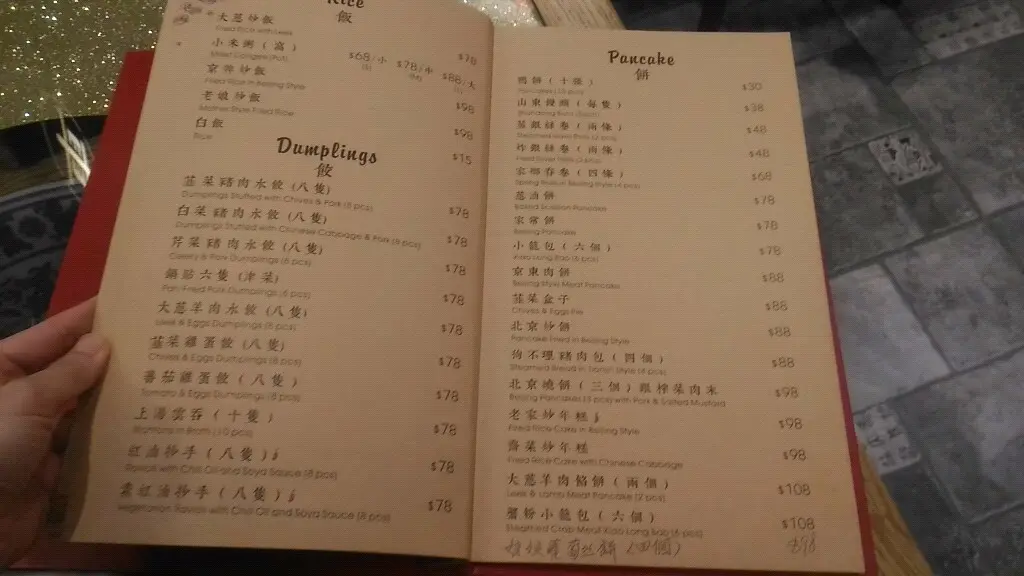 Rice
飯
大蔥炒飯
Fried Rice with Leek
$78
小米粥（窩）
$68/小 $78/中 $88/大
京葬炒飯
Fried Rice in Beijing Style
$98
老娘炒飯
Mother Style Fried Rice
$98
白飯
Rice
$15
Dumplings
餃
韮菜豬肉水餃（八隻）
Dumplings Stuffed with Chives & Pork (8 pcs)
$78
白菜豬肉水餃（八隻）
Dumplings Stuffed with Chinese Cabbage & Pork (8 pcs)
$78
芹菜豬肉水餃（八隻）
Celery & Pork Dumplings (8 pcs)
$78
鍋貼六隻（津菜）
Pan Fried Pork Dumplings (6 pcs)
$78
大蔥羊肉水餃（八隻）
Leek & Eggs Dumplings (8 pcs)
$78
韮菜雞蛋餃（八隻）
Chives & Eggs Dumplings (8 pcs)
$78
蕃茄雞蛋餃（八隻）
Tomato & Eggs Dumplings (8 pcs)
$78
上海雲吞（十隻）
Wontons in Broth (10 pcs)
$78
紅油抄手（八隻）
Ravioli with Chili Oil and Soya Sauce (8 pcs)
$78
素紅油抄手（八隻）
Vegetarian Ravioli with Chili Oil and Soya Sauce (8 pcs)
$78
Pancake
餅
鴨餅（十張）
Pancakes (10 pcs)
$30
山東饅頭（每隻）
$38
蒸銀絲卷（兩條）
$48
炸銀絲卷（兩條）
$48
家鄉春卷（四條）
Spring Rolls in Beijing Style (4 pcs)
$68
蔥油餅
Baked Scallion Pancake
$78
家常餅
Beijing Pancake
$78
小籠包（六個）
Xiao Long Bao (6 pcs)
$78
京東肉餅
Beijing Style Meat Pancake
$88
韮菜盒子
Chives & Eggs Pie
$88
北京炒餅
Pancake Fried in Beijing Style
$88
狗不理豬肉包（四個）
Steamed Bread in Tianjin Style (4 pcs)
$88
北京燒餅（三個）跟榨菜肉末
Beijing Pancakes (3 pcs) with Pork & Salted Mustard
$98
老家炒年糕
Fried Rice Cake in Beijing Style
$98
齋菜炒年糕
Fried Rice Cake with Chinese Cabbage
$98
大蔥羊肉餡餅（兩個）
Leek & Lamb Meat Pancake (2 pcs)
$108
蟹粉小籠包（六個）
Steamed Crab Meat Xiao Long Bao (6 pcs)
$108
絲餅（四個）
$98